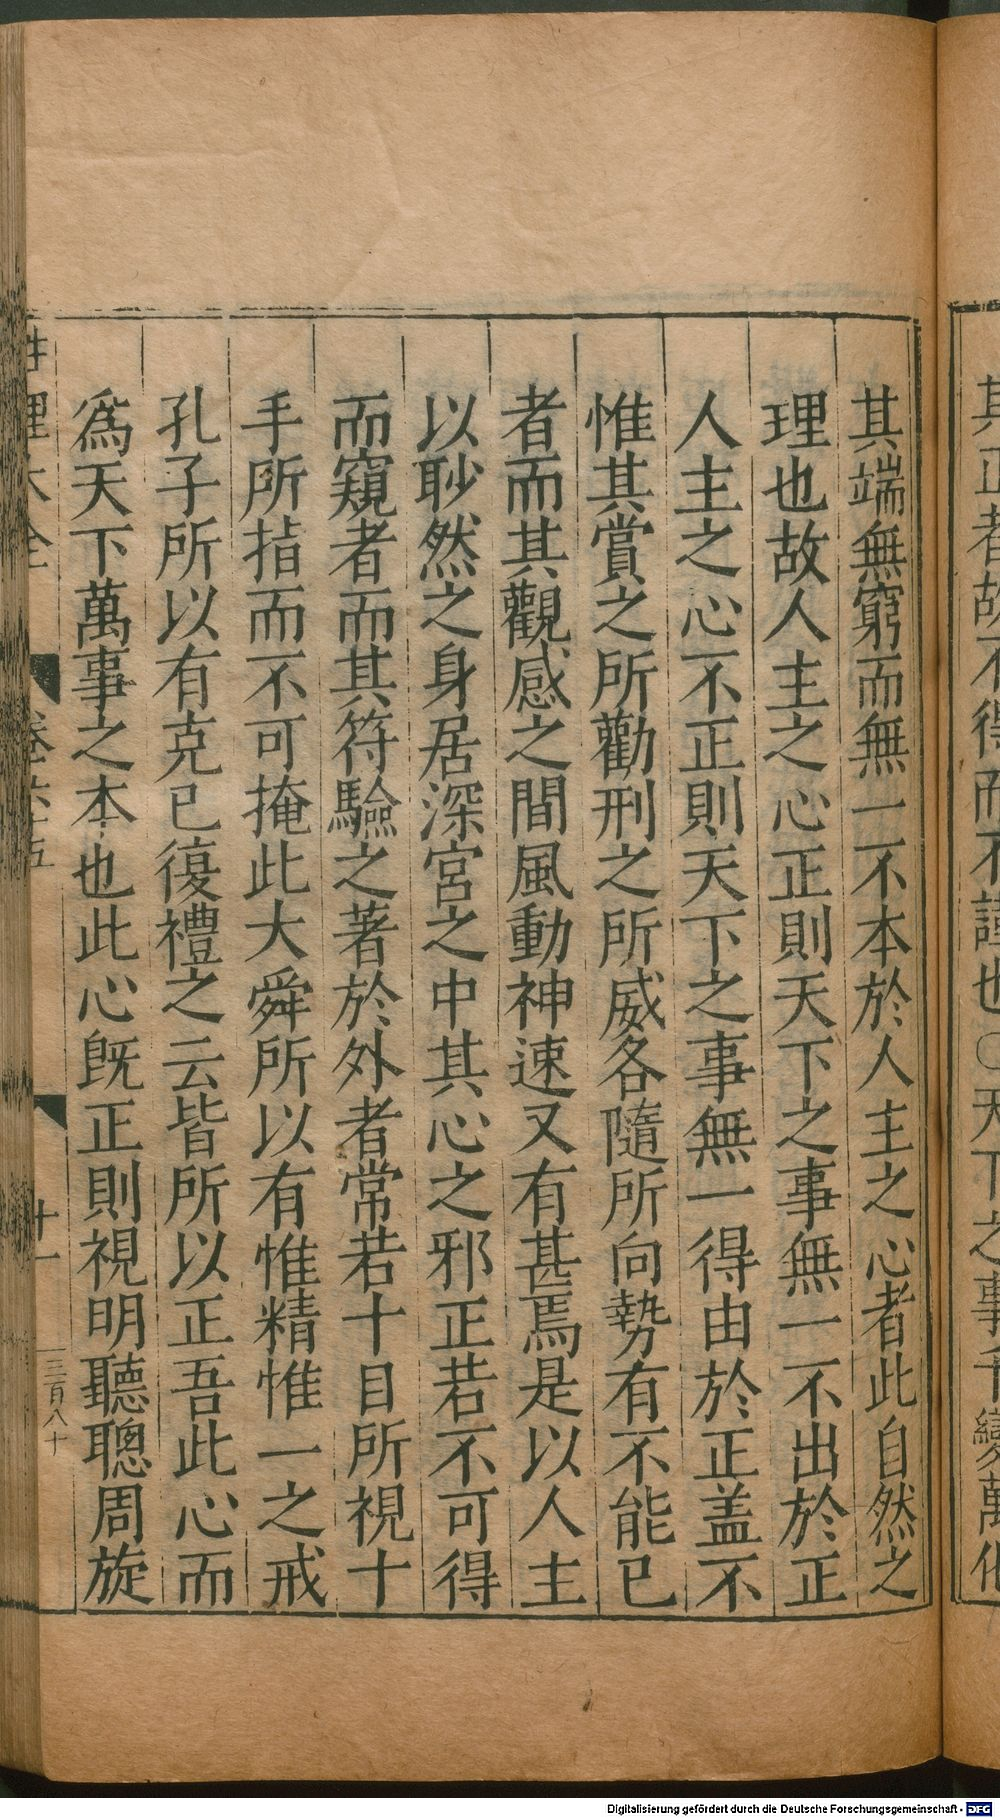 其正者故不得而不謹也○天下之事千變萬化
其端無窮而無一不本於人主之心者此自然之
理也故人主之心正則天下之事無一不出於正
人主之心不正則天下之事無一得由於正盖不
惟其賞之所勸刑之所威各隨所向勢有不能已
者而其觀感之間風動神速又有甚焉是以人主
以眇然之身居深宮之中其心之邪正若不可得
而窺者而其符驗之著於外者常若十目所視十
手所指而不可掩此大舜所以有惟精惟一之戒
孔子所以有克已復禮之云皆所以正吾此心而
爲天下萬事之本也此心旣正則視明聽聰周旋
性理大全 卷六十五 十一 三百八十
Digitalisierung gefördert durch die Deutsche Forschungsgemeinschaft - DFG